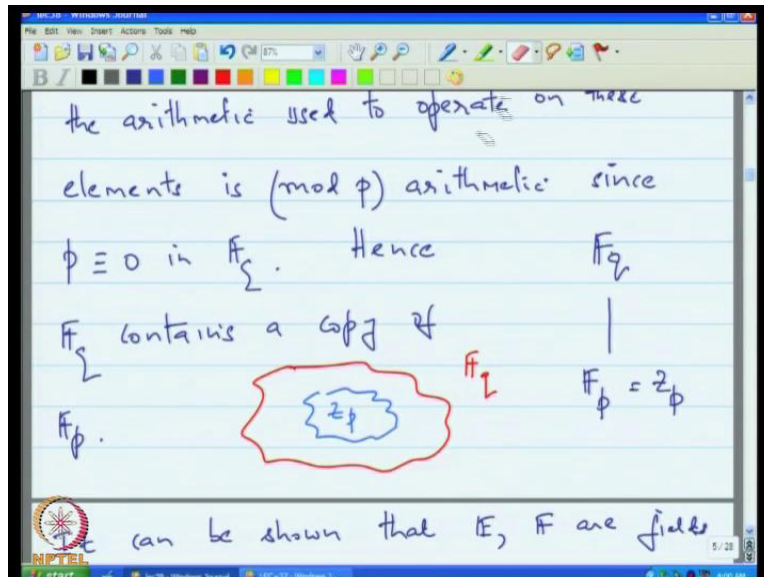 lec38 - Windows Journal
File Edit View Insert Actions Tools Help
87%
B I
the arithmetic used to operate on these
elements is (mod p) arithmetic since
p ≡ 0 in 𝔽q. Hence
𝔽q
𝔽q contains a copy of
𝔽q
𝔽p = Zp
Zp
𝔽p.
It can be shown that 𝔼, 𝔽 are fields
5/28
NPTEL
start